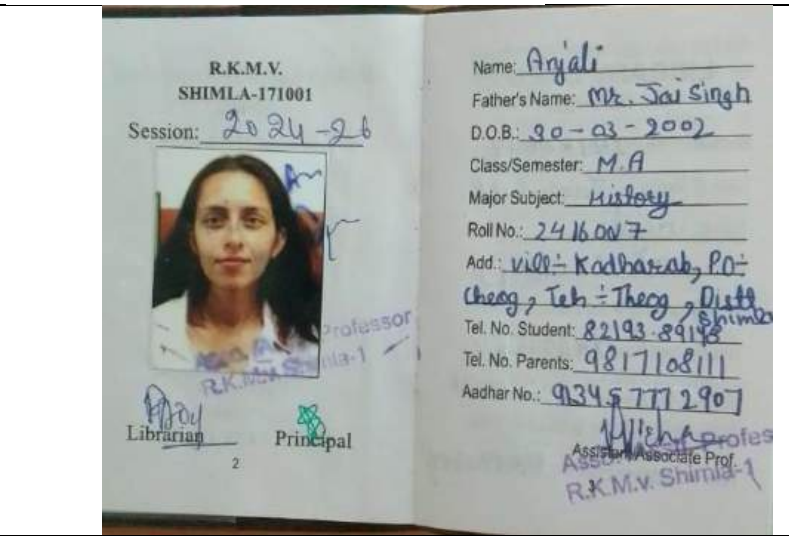 R.K.M.V.
SHIMLA-171001
Session: 2024-26
Professor
R.K.M.V. Shimla-1
Librarian
Principal
2
Name: Anjali
Father's Name: Mr. Jai Singh
D.O.B.: 30-03-2002
Class/Semester: M.A
Major Subject: History
Roll No.:
Add.: Vill÷ Kadharab, P.O÷
Cheog, Teh÷ Theog, Distt
Shimla
Tel. No. Student: 82193-89148
Tel. No. Parents: 9817108111
Aadhar No.: 913457772907
Assistant/Associate Prof.
R.K.M.V. Shimla-1